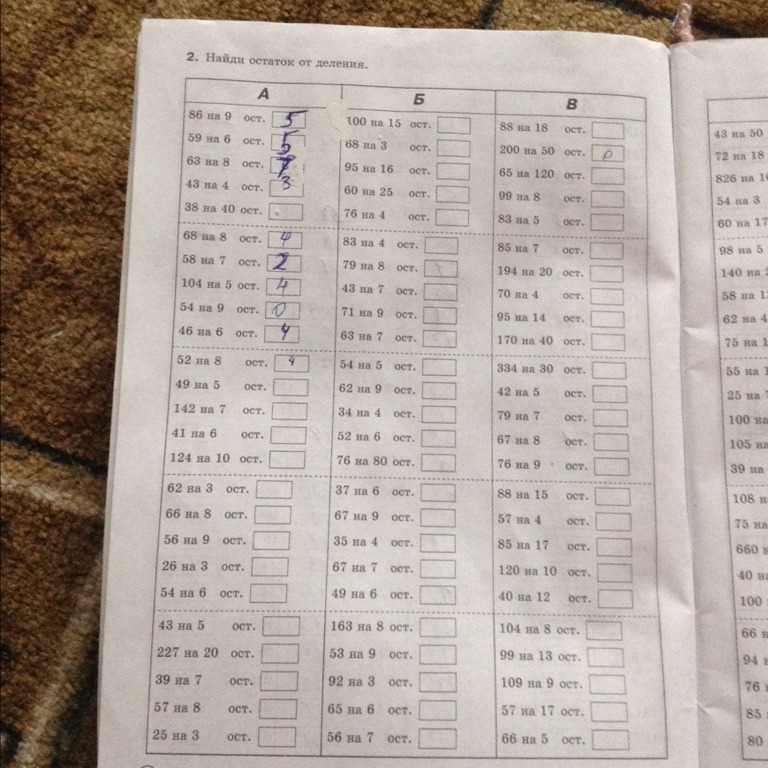 2. Найди остаток от деления.
А Б В
86 на 9 ост. 5 100 на 15 ост. 88 на 18 ост.
59 на 6 ост. 5 68 на 3 ост. 200 на 50 ост. 0
63 на 8 ост. 7 95 на 16 ост. 65 на 120 ост.
43 на 4 ост. 3 60 на 25 ост. 99 на 8 ост.
38 на 40 ост. 76 на 4 ост. 83 на 5 ост.
68 на 8 ост. 4 83 на 4 ост. 85 на 7 ост.
58 на 7 ост. 2 79 на 8 ост. 194 на 20 ост.
104 на 5 ост. 4 43 на 7 ост. 70 на 4 ост.
54 на 9 ост. 0 71 на 9 ост. 95 на 14 ост.
46 на 6 ост. 4 63 на 7 ост. 170 на 40 ост.
52 на 8 ост. 4 54 на 5 ост. 334 на 30 ост.
49 на 5 ост. 62 на 9 ост. 42 на 5 ост.
142 на 7 ост. 34 на 4 ост. 79 на 7 ост.
41 на 6 ост. 52 на 6 ост. 67 на 8 ост.
124 на 10 ост. 76 на 80 ост. 76 на 9 ост.
62 на 3 ост. 37 на 6 ост. 88 на 15 ост.
66 на 8 ост. 67 на 9 ост. 57 на 4 ост.
56 на 9 ост. 35 на 4 ост. 85 на 17 ост.
26 на 3 ост. 67 на 7 ост. 120 на 10 ост.
54 на 6 ост. 49 на 6 ост. 40 на 12 ост.
43 на 5 ост. 163 на 8 ост. 104 на 8 ост.
227 на 20 ост. 53 на 9 ост. 99 на 13 ост.
39 на 7 ост. 92 на 3 ост. 109 на 9 ост.
57 на 8 ост. 65 на 6 ост. 57 на 17 ост.
25 на 3 ост. 56 на 7 ост. 66 на 5 ост.
43 на 50
72 на 18
826 на
54 на 3
60 на 17
98 на 5
140 на
58 на
62 на 4
75 на
55 на
25 на
100 на
105 на
39 на
108 на
75 на
660
40 на
100
66
94
76
85
80